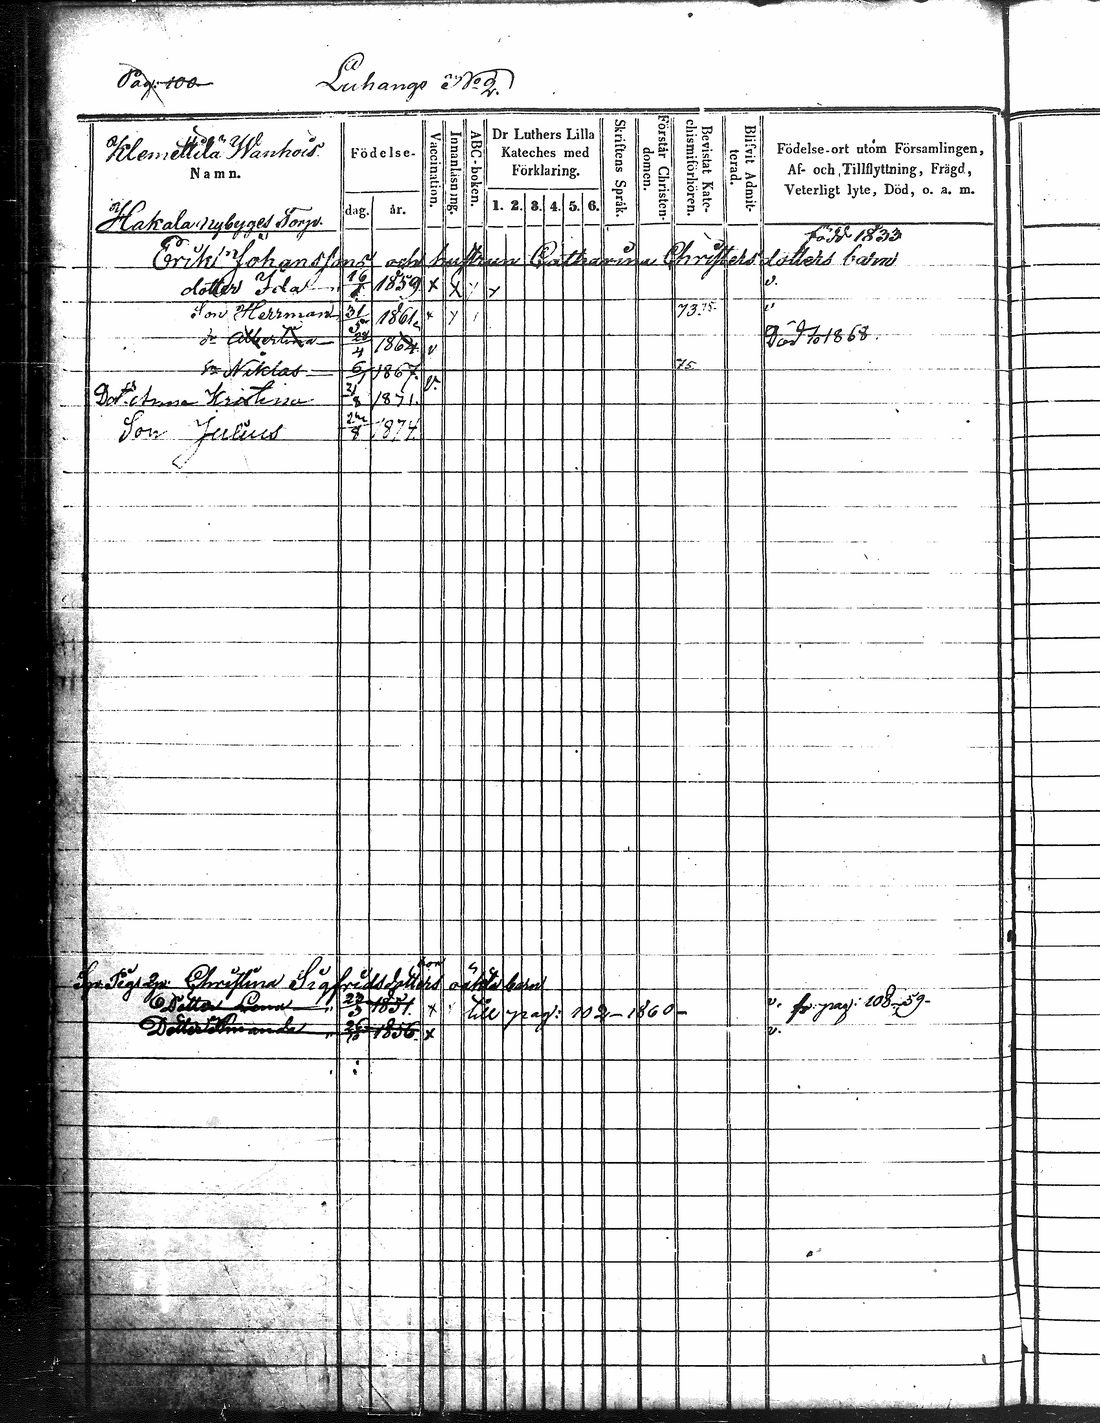 Pag: 100
Luhango No 2.
Klemettilä Wanhois.
Namn.
Födelse-
dag. år.
Vaccination.
Innanläsning.
ABC-boken.
Dr Luthers Lilla
Kateches med
Förklaring.
1. 2. 3. 4. 5. 6.
Skriftens Språk.
Förstår Christen-
domen.
Bevistat Kate-
chismiförhören.
Blifvit Admit-
terad.
Födelse-ort utom Församlingen,
Af- och Tillflyttning, Frägd,
Veterligt lyte, Död, o. a. m.
Hakala nybyges Torp.
född 1833
Erik Johanssons och hustrun Catharina Christersdotters barn
dotter Ida 1859 x x v.
Son Herrman 31 1861 73. 75. "
Albertina 4 1864 v Död 1868.
Niklas 6 1867 v. 75
Dot. Anna Kristina 8 1871.
Son Julius 8 1874.
Christina Sigfridsdotters oäkta barn
Dotter Lena 23/3 1851. x till pag: 102 - 1860 - v. fr. pag: 108 - 59 -
Dotter Amanda 1856 x v.